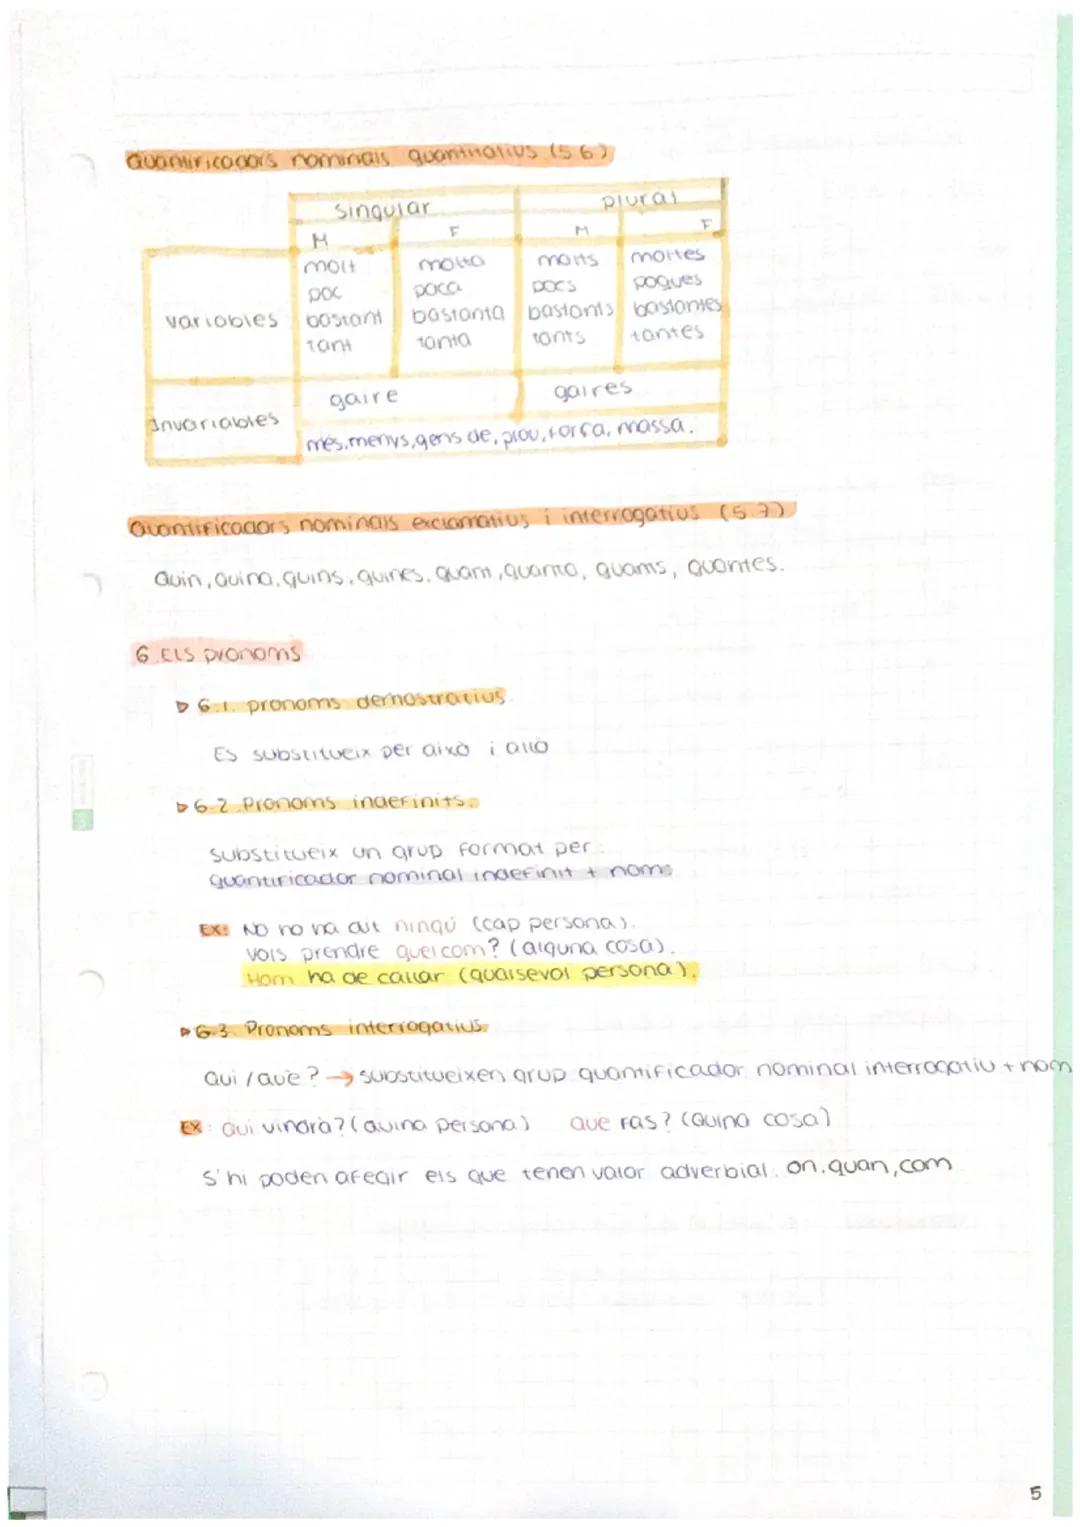 Quantificadors nominals quantitatius (5.6)
singular plural
M F M F
variables
molt molta molts moltes
poc poca pocs poques
bastant bastanta bastants bastantes
tant tanta tants tantes
Invariables
gaire gaires
més, menys, gens de, prou, força, massa.
Quantificadors nominals exclamatius i interrogatius (5.7)
Quin, Quina, quins, quines, quant, quanta, quants, quantes.
6 Els pronoms
6.1. pronoms demostratius.
Es substitueix per això i allò
6.2 Pronoms indefinits.
Substitueix un grup format per:
quantificador nominal indefinit + noms
EX: No ho ha dit ningú (cap persona).
Vols prendre quelcom? (alguna cosa).
Hom ha de callar (qualsevol persona).
6.3. Pronoms interrogatius.
Qui / què? → substitueixen grup quantificador nominal interrogatiu + nom
EX: Qui vindrà? (Quina persona) Què fas? (Quina cosa)
S'hi poden afegir els que tenen valor adverbial: on, quan, com
5